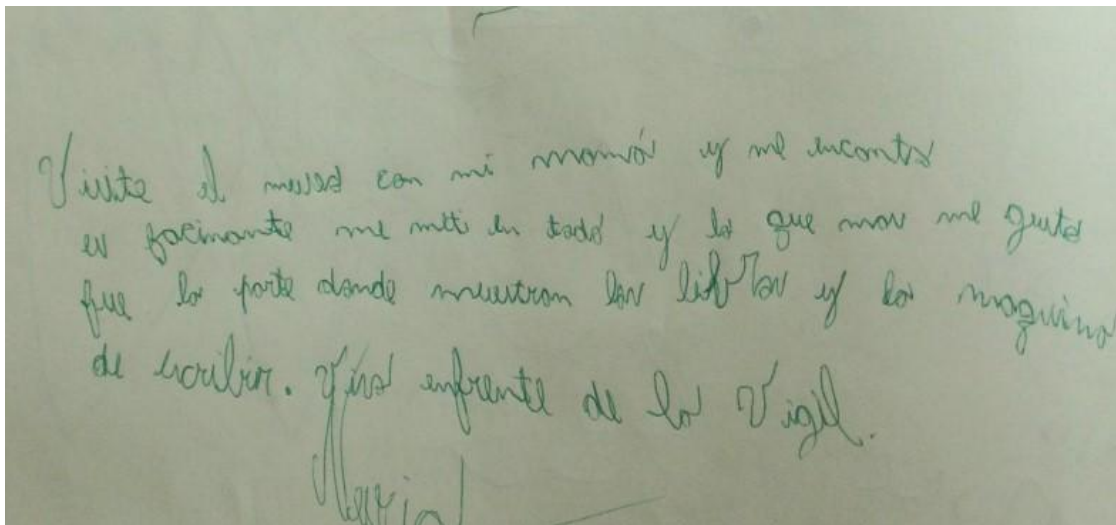 Visite el museo con mi mamá y me encanto
es facinante me meti en todo y lo que mas me gusto
fue la parte donde muestran los libros y la maquina
de escribir. Vivo enfrente de la Vigil.